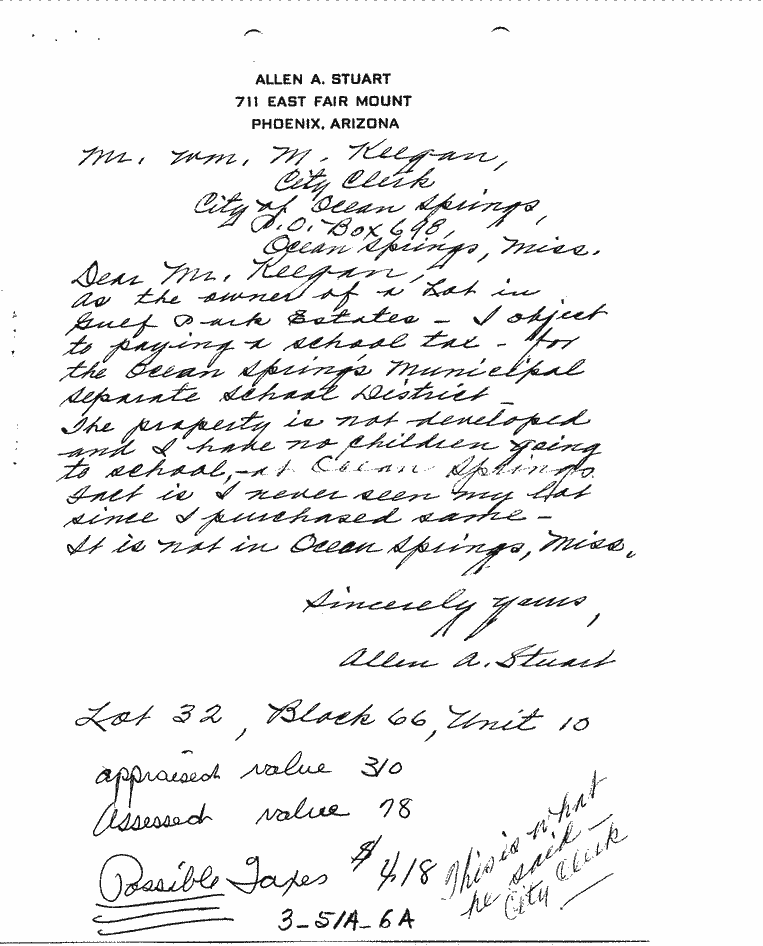 ALLEN A. STUART
711 EAST FAIR MOUNT
PHOENIX, ARIZONA
Mr. Wm. M. Keegan,
City Clerk
City of Ocean Springs,
P.O. Box 698,
Ocean Springs, Miss.
Dear Mr. Keegan,
As the owner of a Lot in
Gulf Park Estates – I object
to paying a school tax – for
the Ocean Springs Municipal
Separate School District –
The property is not developed
and I have no children going
to school, – at Ocean Springs.
Fact is I never seen my Lot
since I purchased same –
It is not in Ocean Springs, Miss.
Sincerely yours,
Allen A. Stuart
Lot 32, Block 66, Unit 10
appraised value 310
Assessed value 78
Possible Taxes $
This is what
he said –
City Clerk
3-51A-6A